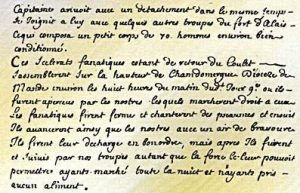 Capitaine arivoit avec un detachement dans le meme temps
se joignit a luy avec quelques autres troupes du fort d'Alais
ce qui composa un petit corps de 70. hommes environ bien
conditionné.
Ces scelerats fanatiques estant de retour du Coulet
sassemblerent sur la hauteur de Chandomergue Diocèze de
Mande environ les huict heures du matin dud. jour 9e ou ils
furent aperçus par les nostres qui marcherent droit a eux
Les fanatiques firent ferme et chanterent des pseaumes et ensuite
ils avancerent ainsy que les nostres avec un air de bravoure
Ils firent leur decharge en bonordre, mais apres ils fuirent
et suivis par nos troupes autant que la force le leur pouvoit
permettre ayants marché toute la nuit et nayants pris
aucun aliment.